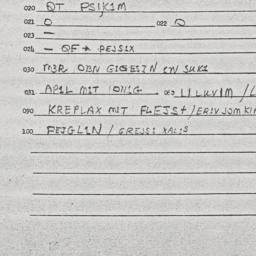 020 QT PSIKIM
021 O 022 O
023 —
024 — QF + PEJSIX
030 MIR OBN GIGESIN IN SUKE
031 APIL MIT ONIG
090 KREPLAX MIT FLEJS+/ERIV JOM KI
100 FEJGLIN / GREJSI XALIS